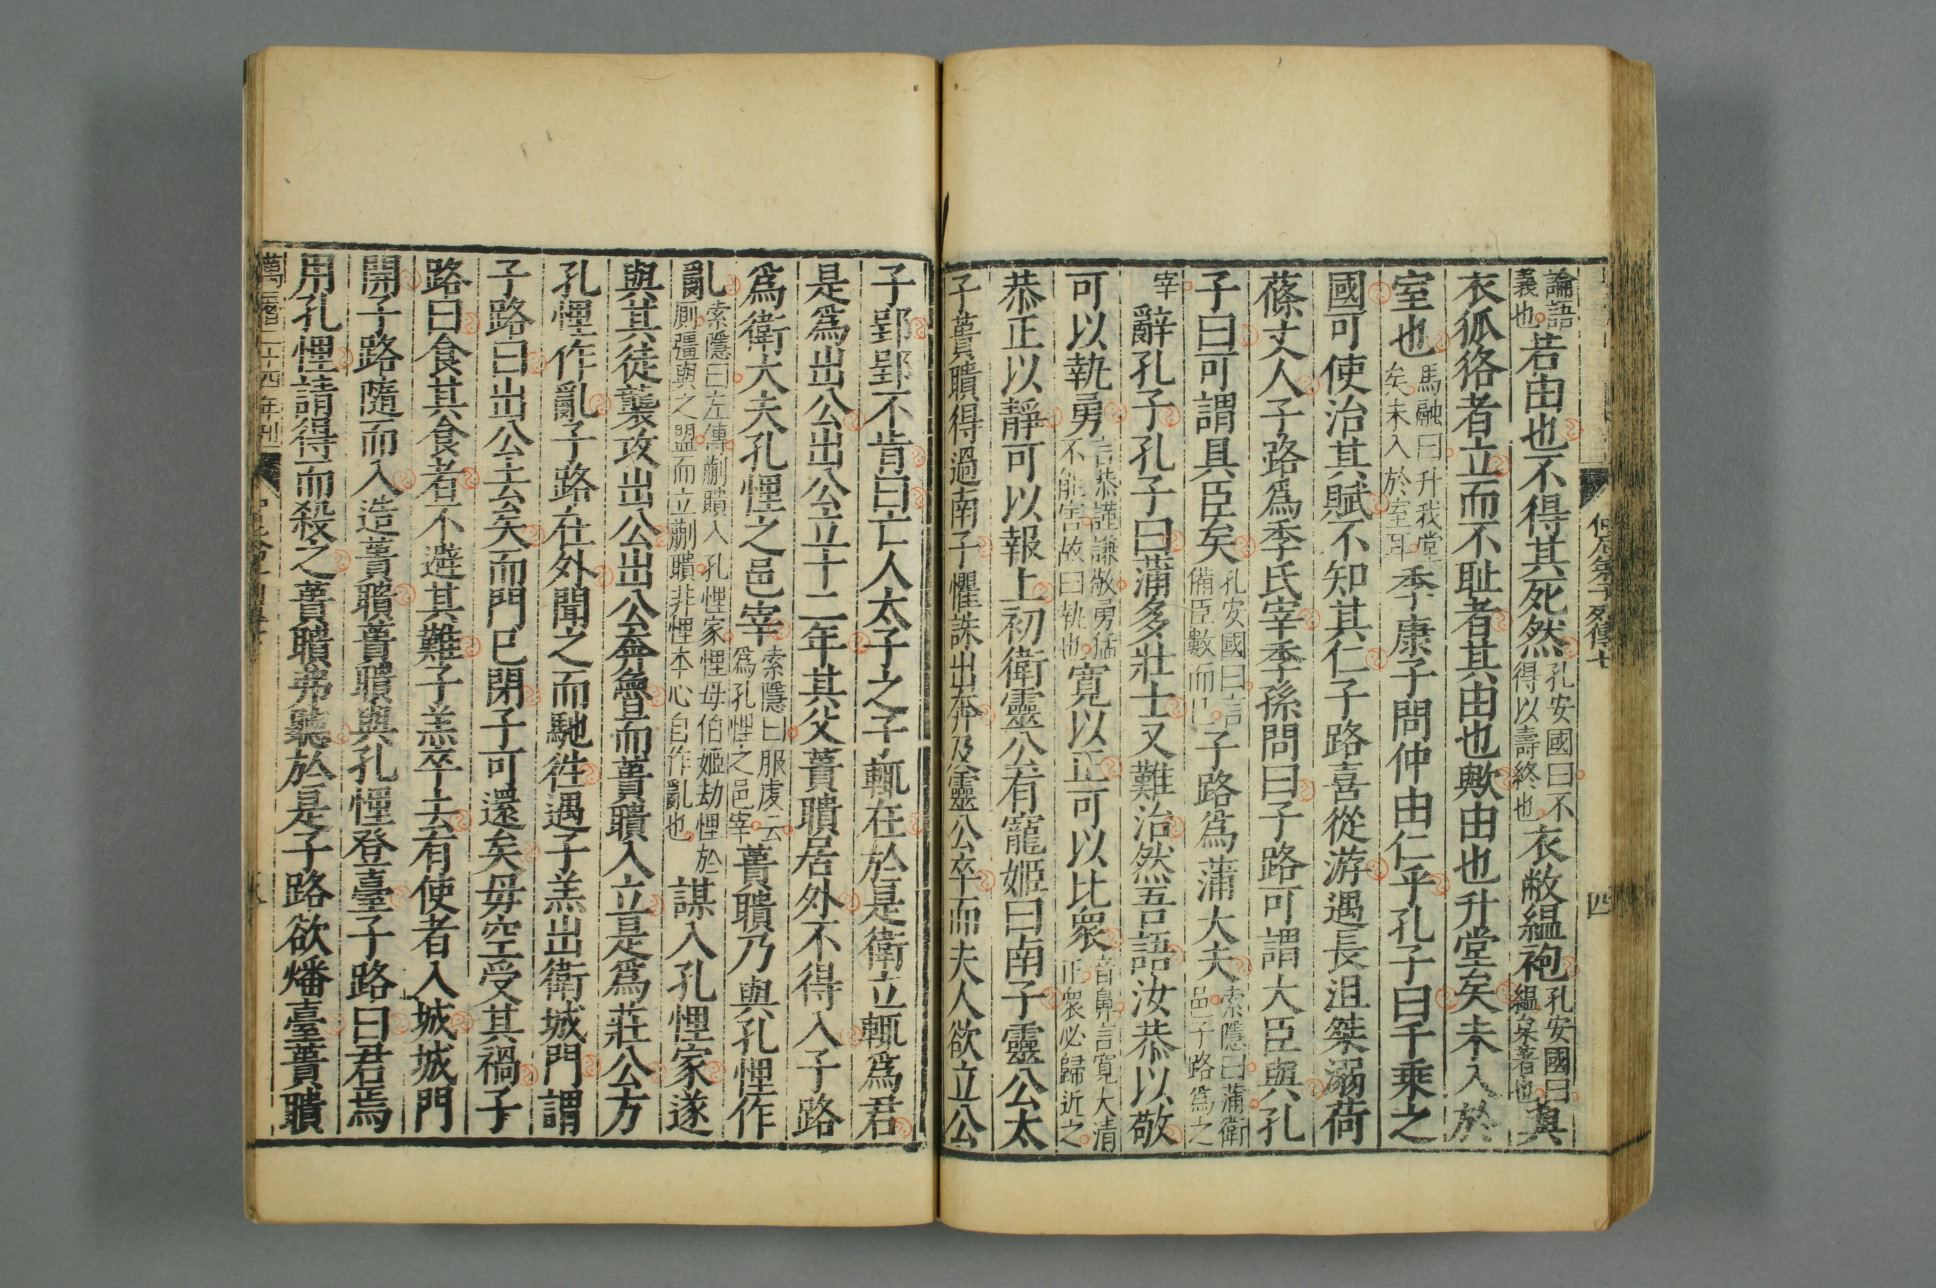 論語義也若由也不得其死然孔安國曰不得以壽終也衣敝緼袍孔安國曰緼枲著也與
衣狐狢者立而不耻者其由也歟由也升堂矣未入於
室也馬融曰升我堂矣未入於室耳季康子問仲由仁乎孔子曰千乘之
國可使治其賦不知其仁子路喜從游遇長沮桀溺荷
蓧丈人子路爲季氏宰季孫問曰子路可謂大臣與孔
子曰可謂具臣矣孔安國曰言備臣數而已子路爲蒲大夫索隱曰蒲衛邑子路爲之
宰辭孔子孔子曰蒲多壯士又難治然吾語汝恭以敬
可以執勇言恭謹謙敬勇猛不能害故曰執也寬以正可以比衆音鼻言寬大清正衆必歸近之
恭正以靜可以報上初衛靈公有寵姬曰南子靈公太
子蕢聵得過南子懼誅出奔及靈公卒而夫人欲立公
子郢郢不肯曰亡人太子之子輒在於是衛立輒爲君
是爲出公出公立十二年其父蕢聵居外不得入子路
爲衛大夫孔悝之邑宰索隱曰服虔云爲孔悝之邑宰蕢聵乃與孔悝作
亂索隱曰左傳蒯聵入孔悝家悝母伯姬劫悝於厠彊與之盟而立蒯聵非悝本心自作亂也謀入孔悝家遂
與其徒襲攻出公出公奔魯而蕢聵入立是爲莊公方
孔悝作亂子路在外聞之而馳徃遇子羔出衛城門謂
子路曰出公去矣而門已閉子可還矣毋空受其禍子
路曰食其食者不避其難子羔卒去有使者入城城門
開子路隨而入造蕢聵蕢聵與孔悝登臺子路曰君焉
用孔悝請得而殺之蕢聵弗聽於是子路欲燔臺蕢聵
萬曆二十四年刊